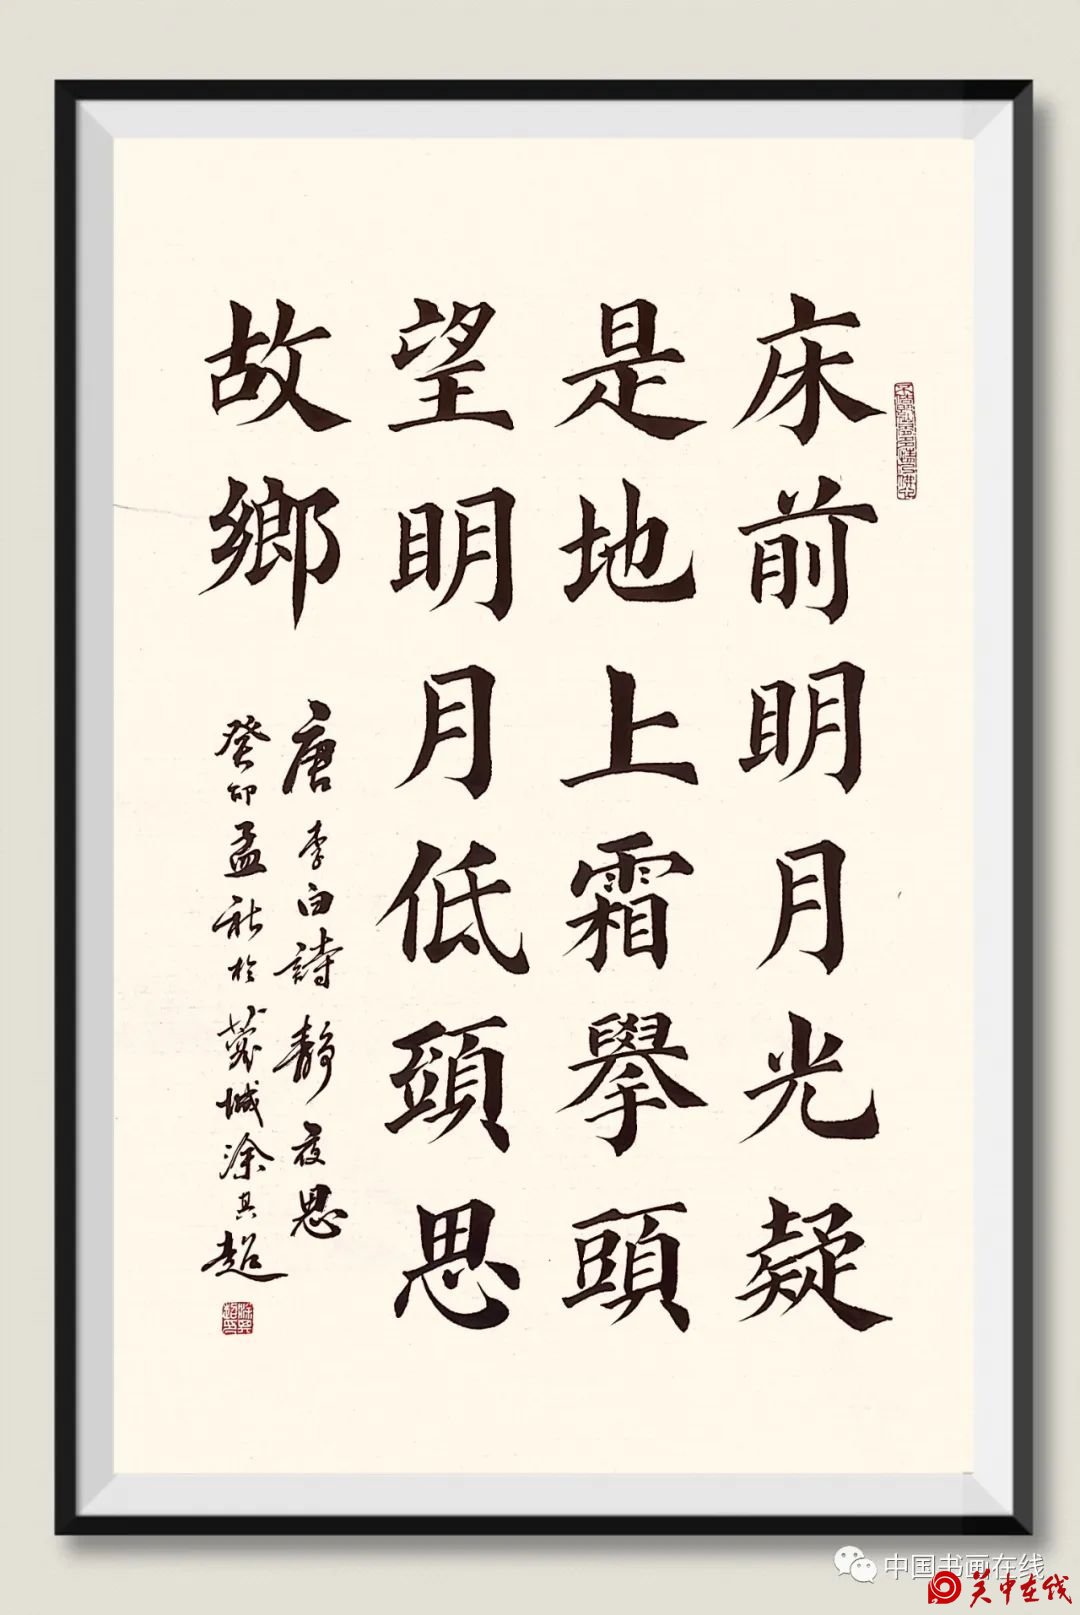 床前明月光疑
是地上霜舉頭
望明月低頭思
故鄉
唐李白詩靜夜思
癸卯孟秋於蒙城涂其超
中国书画在线
关中在线